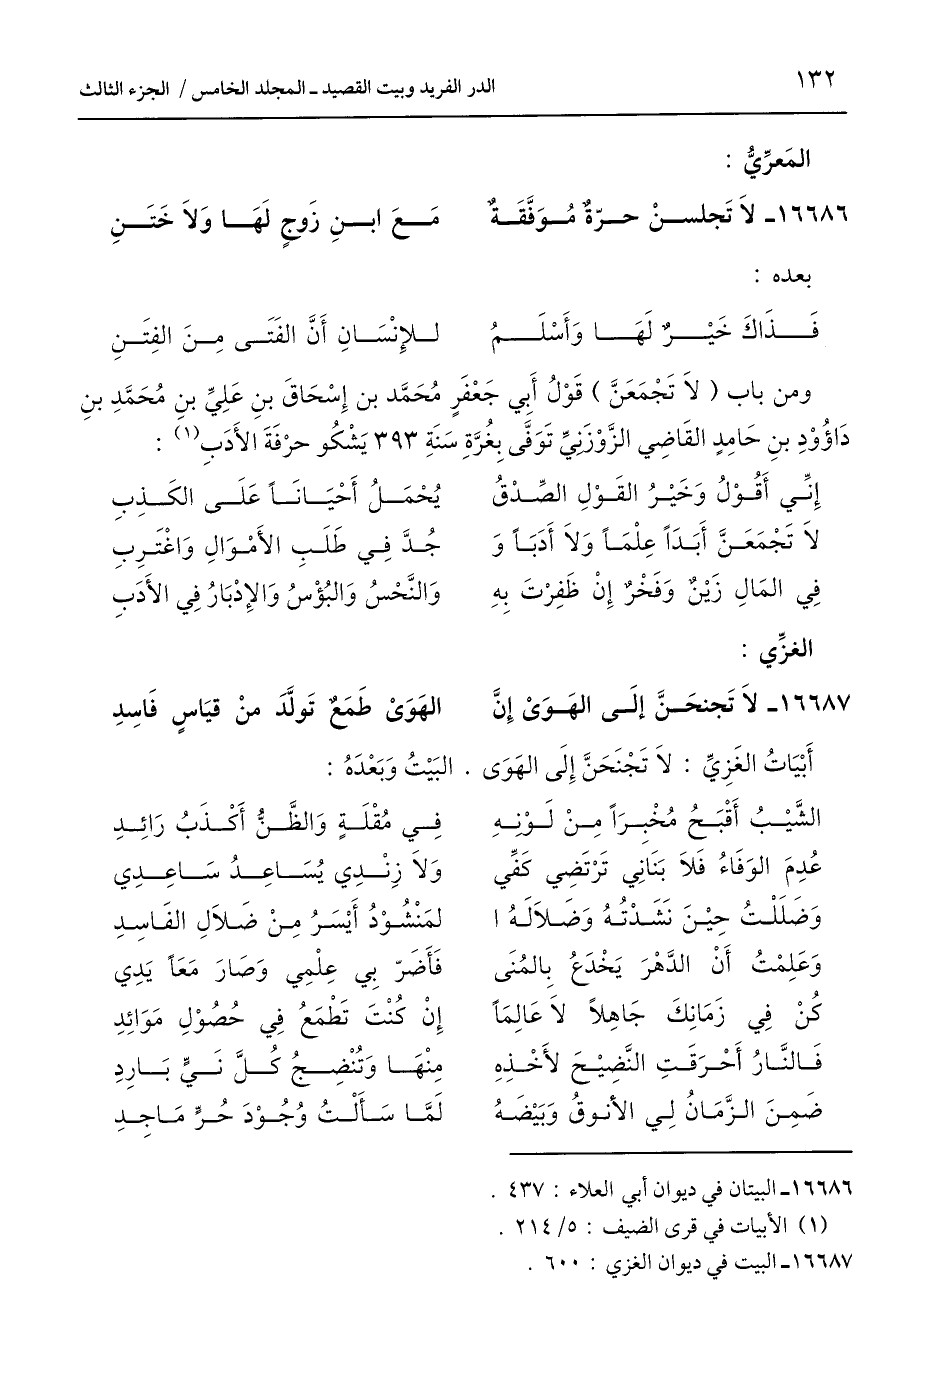 ١٣٢
الدر الفريد وبيت القصيد ـ المجلد الخامس / الجزء الثالث
المَعرِّيُّ :
١٦٦٨٦ـ لاَ تَجلسـنْ حـرّةٌ مُـوَفَّقَـةٌ مَـعَ ابـنِ زَوجٍ لَهَـا وَلاَ خَتَـنِ
بعده :
فَـذَاكَ خَيْـرٌ لَهَـا وَأَسْلَـمُ لـلإِنْسَـانِ أَنَّ الفَتَـى مِـنَ الفِتَـنِ
ومن باب ( لاَ تَجْمَعَنَّ ) قَوْلُ أَبِي جَعْفَرٍ مُحَمَّد بن إِسْحَاقَ بنِ عَلِيِّ بنِ مُحَمَّدِ بنِ
دَاؤُوْدِ بنِ حَامِدٍ القَاضِي الزَّوْزَنِيِّ تَوَفَّى بِغُرَّةِ سَنَةِ ٣٩٣ يَشْكُو حرْفَةَ الأَدَبِ(١) :
إِنِّـي أَقُـوْلُ وَخَيْـرُ القَـوْلِ الصِّـدْقُ يُحْمَـلُ أَحْيَـانَـاً عَلَـى الكَـذِبِ
لاَ تَجْمَعَـنَّ أَبَـدَاً عِلْمَـاً وَلاَ أَدَبَـاً وَ جُـدَّ فِـي طَلَـبِ الأَمْـوَالِ وَاغْتَـرِبِ
فِي المَالِ زَيْنٌ وَفَخْرٌ إِنْ ظَفِرْتَ بِهِ وَالنَّحْسُ وَالبُؤْسُ وَالإِدْبَارُ فِي الأَدَبِ
الغزِّي :
١٦٦٨٧ـ لاَ تَجنحَـنَّ إلَـى الهَـوَىْ إنَّ الهَوَىْ طَمَعٌ تَولَّدَ منْ قيَاسٍ فَاسِدِ
أَبْيَاتُ الغَزِيِّ : لاَ تَجْنَحَنَّ إِلَى الهَوَى . البَيْتُ وَبَعْدَهُ :
الشَّيْـبُ أَقْبَـحُ مُخْبِـرَاً مِـنْ لَـوْنِـهِ فِـي مُقْلَـةٍ وَالظَّـنُّ أَكْـذَبُ رَائِـدِ
عُدِمَ الوَفَاءُ فَلاَ بَنَانِي تَرْتَضِي كَفِّي وَلاَ زِنْـدِي يُسَـاعِـدُ سَـاعِـدِي
وَضَلَلْـتُ حِيْـنَ نَشَـدْتُـهُ وَضَـلاَلَـهُ ا لمَنْشُـوْدُ أَيْسَـرُ مِـنْ ضَـلاَلِ الفَـاسِـدِ
وَعَلِمْتُ أَنْ الدَّهْرَ يَخْدَعُ بِالمُنَى فَأَضَرّ بِي عِلْمِي وَصَارَ مَعَاً يَدِي
كُنْ فِي زَمَانِكَ جَاهِلاً لاَ عَالِمَاً إِنْ كُنْتَ تَطْمَعُ فِي حُصُوْلِ مَوَائِدِ
فَـالنَّـارُ أَحْـرَقَـتِ النَّضِيْـجَ لأَخْـذِهِ مِنْهَـا وَتُنْضِـجُ كُـلَّ نَـيٍّ بَـارِدِ
ضَمِـنَ الـزَّمَـانُ لِـي الأَنـوقُ وَبَيْضَـهُ لَمَّـا سَـأَلْـتُ وُجُـوْدَ حُـرٍّ مَـاجِـدِ
١٦٦٨٦ـ البيتان في ديوان أبي العلاء : ٤٣٧ .
(١) الأبيات في قرى الضيف : ٥/ ٢١٤ .
١٦٦٨٧ـ البيت في ديوان الغزي : ٦٠٠ .